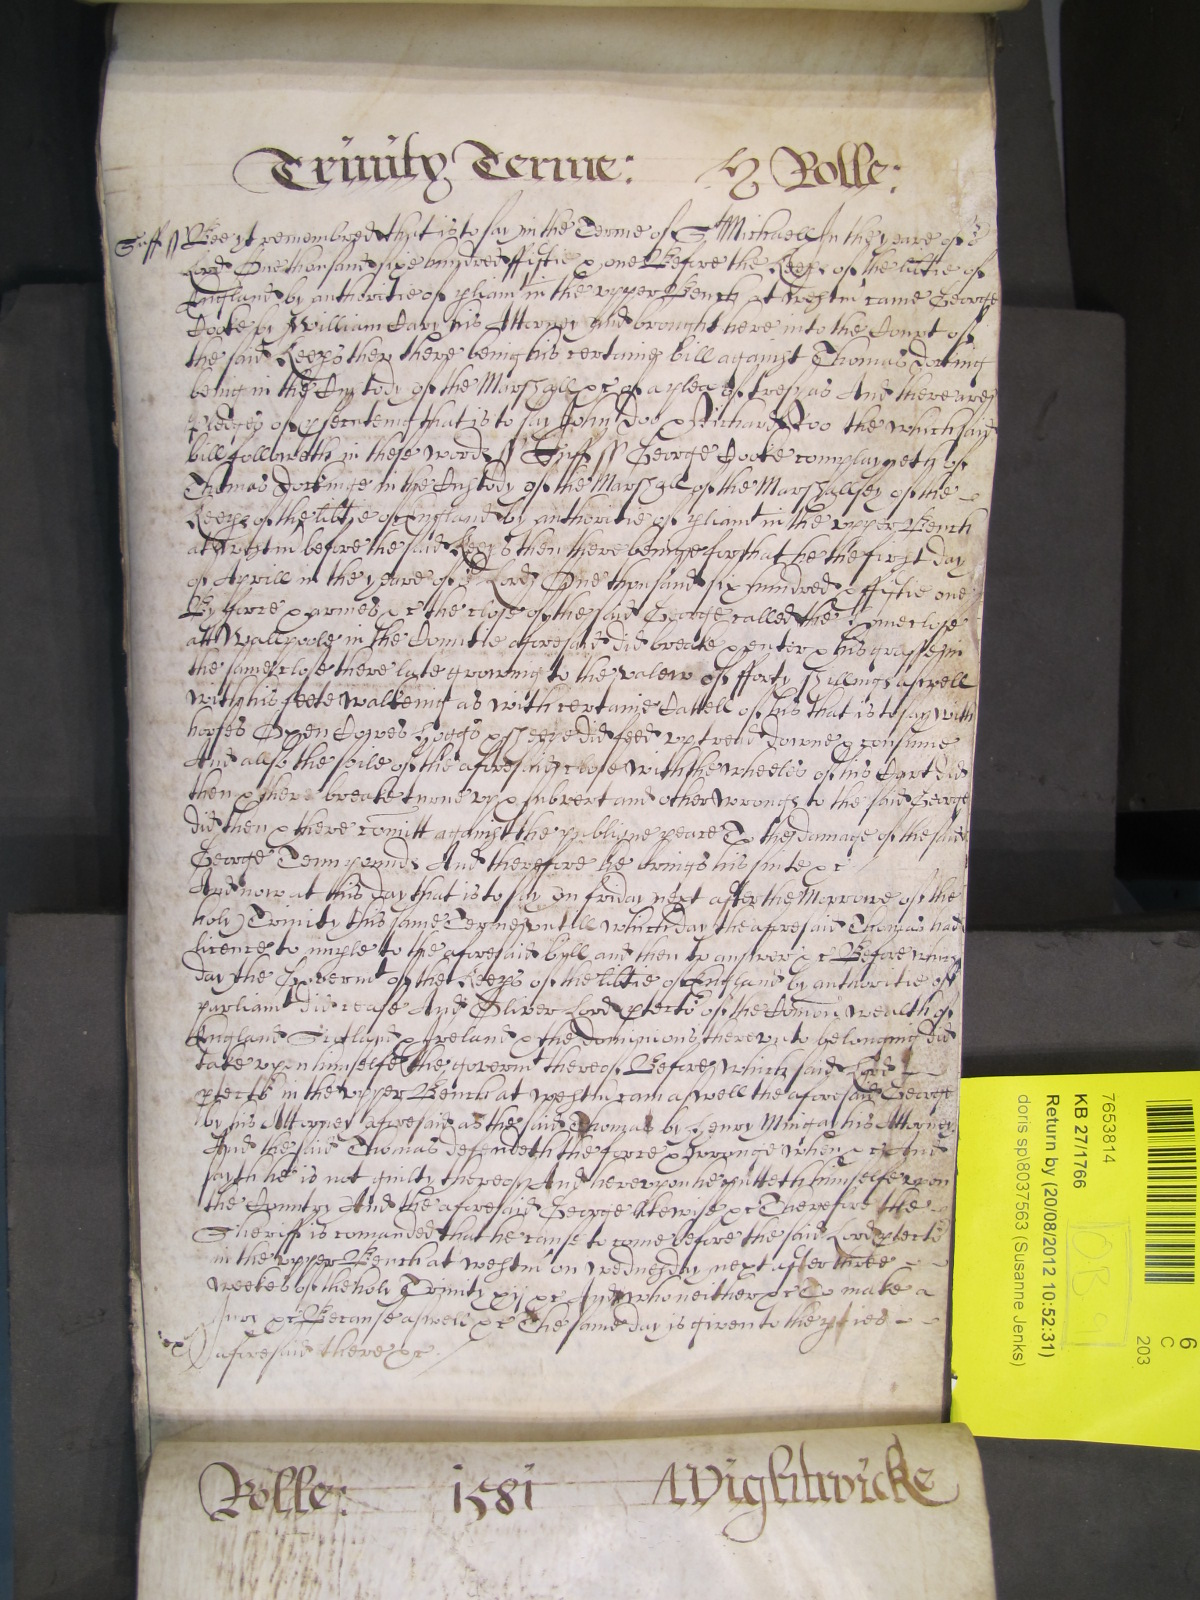 Trinity Terme: Rolle:
Suff ss Bee yt remembred that is to say in the Terme of St Michaell In the yeare of or
Lord One thousand sixe hundred ffiftie & one Before the Keeps of the libtie of
England by authoritie of pliamt in the upper Bench at Westm came George
Cooke by William Dary his Attorney And brought here into the Court of
the said Keeps then there being his certaine bill against Thomas Docking
being in the Custody of the Marshall &c of a plea of trespas And there are
Pledges of psecuteing that is to say John Doo & Richard Roo the which said
bill followeth in these words ss Suff ss George Cooke complayneth of
Thomas Dockinge in the Custody of the Marshall of the Marshallsey of the
Keeps of the libtie of England by authoritie of pliamt in the upper Bench
at Westm before the said Keeps then there beinge for that he the first day
of Aprill in the yeare of or Lord One thousand six hundred & fiftie one
By force & armes &c the close of the said George called the close
att Wallpoole in the Countie aforesaid did breake & enter & his grasse in
the same close there late growing to the valew of fforty shillings aswell
with his feete walkeing as with certaine Cattell of his that is to say with
horses Oxen Cowes Hoggs & sheepe did feed up tread downe & consume
And allso the soile of the aforesaid close with the wheeles of his Cart did
then & there breake turne up & subvert and other wrongs to the said George
did then & there comitt against the publique peace To the damage of the said
George Tenn pounds And therefore he brings his suite &c
And now at this day that is to say on friday next after the Morrowe of the
holy Trinity this same Terme untill which day the aforesaid Thomas had
licence to imple to the aforesaid byll and then to answer &c Before which
day the Governmt of the Keeps of the libtie of England by authoritie of
parliamt did cease And Oliver Lord ptector of the Comon wealth of
England Scotland & Ireland & the dominions thereunto belonging did
take upon himselfe the governmt thereof Before which said Lord
ptector in the upper Bench at westm cam aswell the aforesaid George
by his Attorney aforesaid as the said Thomas by Henry Mingay his Attorney
And the said Thomas defendeth the force & wronge when &c And
sayth he is not guilty thereof And hereupon he putteth himselfe upon
the Countrey And the aforesaid George likewise &c Therefore the
Sheriff is comanded that he cause to come before the said Lord ptector
in the upper Bench at westm on wednesday next after three
weekes of the holy Trinity xij &c And who neither &c To make a
Jury &c Because aswell &c The same day is given to the pties
aforesaid there &c
Rolle: 1581 Wightwicke
7653814
KB 27/1766
Return by (20/08/2012 10:52:31)
doris sp\8037563 (Susanne Jenks)
6
C
203